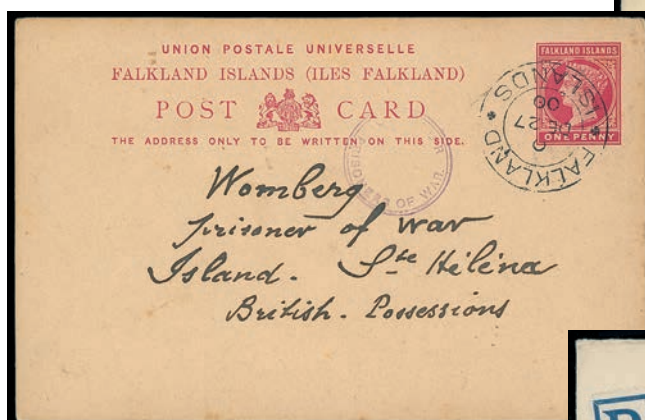 UNION POSTALE UNIVERSELLE
FALKLAND ISLANDS (ILES FALKLAND)
POST CARD
THE ADDRESS ONLY TO BE WRITTEN ON THIS SIDE.
FALKLAND ISLANDS
ONE PENNY
FALKLAND ISLANDS
DE 27
00
OF WAR
Womberg
prisoner of war
Island. Ste Hélèna
British. Possessions